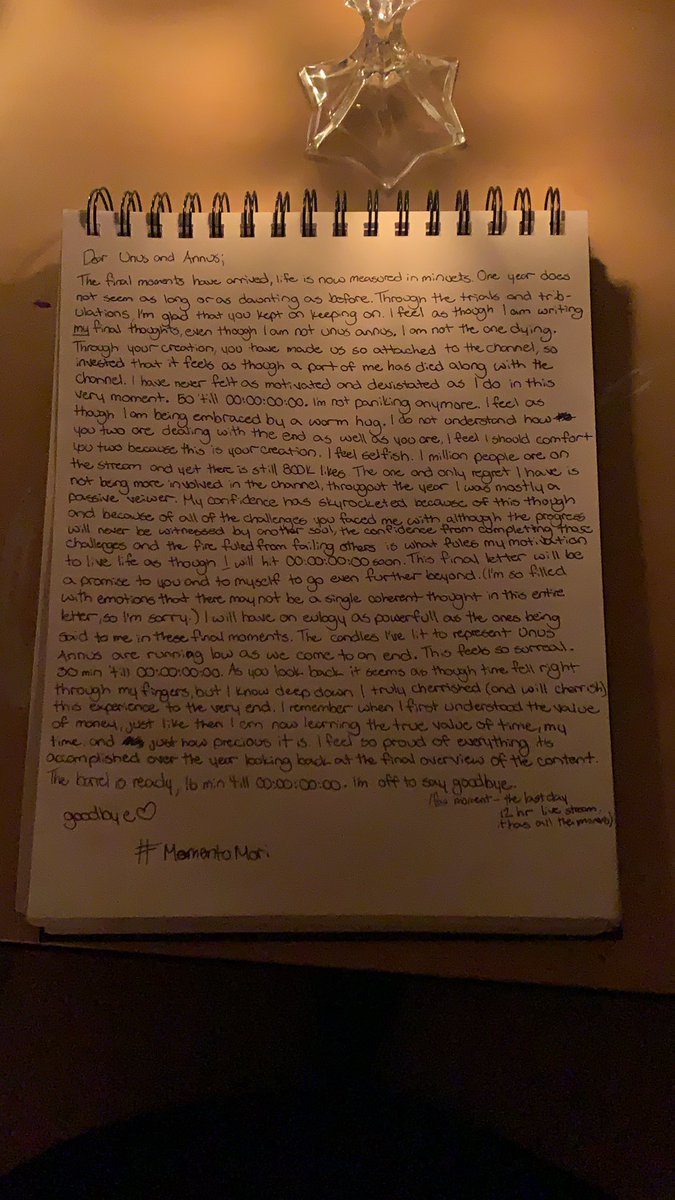 Dear Unus and Annus;
The final moments have arrived, life is now measured in minuets. One year does
not seem as long or as daunting as before. Through the trials and trib-
ulations, I'm glad that you kept on keeping on. I feel as though I am writing
my final thoughts, even though I am not unus annus, I am not the one dying.
Through your creation, you have made us so attached to the channel, so
invested that it feels as though a part of me has died along with the
channel. I have never felt as motivated and devistated as I do in this
very moment. 50 'till 00:00:00:00. Im not paniking anymore. I feel as
though I am being embraced by a worm hug. I do not understand how
you two are dealing with the end as well as you are, I feel I should comfort
you two because this is your creation. I feel selfish. 1 million people are on
the stream and yet there is still 800K likes. The one and only regret I have is
not being more involved in the channel, througout the year I was mostly a
passive veiwer. My confidence has skyrocketed because of this though
and because of all of the challenges you faced me with although the progress
will never be witnessed by another soul, the confidence from completing those
challenges and the fire fuled from failing others is what fules my motivation
to live life as though I will hit 00:00:00:00 soon. This final letter will be
a promise to you and to myself to go even further beyond. (I'm so filled
with emotions that there may not be a single coherent thought in this entire
letter, so I'm sorry.) I will have an eulogy as powerfull as the ones being
said to me in these final moments. The candles I've lit to represent Unus
Annus are running low as we come to an end. This feels so surreal.
30 min 'till 00:00:00:00. As you look back it seems as though time fell right
through my fingers, but I know deep down I truly cherished (and will cherish)
this experience to the very end. I remember when I first understood the value
of money, just like then I am now learning the true value of time, my
time. and just how precious it is. I feel so proud of everything
accomplished over the year looking back at the final overview of the content.
The barrel is ready, 16 min 'till 00:00:00:00. I'm off to say goodbye.
moment - the last day
12 hr live stream.
goodbye♡
#MomentoMori